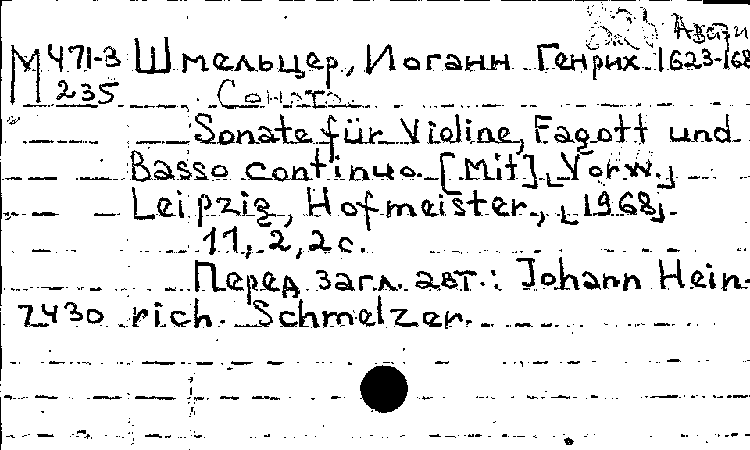 Австри
М 471-3 Шмельцер, Иоганн Генрих 1623-168
235 Соната.
Sonate für Violine, Fagott und
Basso continuo. [Mit] Vorw.
Leipzig, Hofmeister., [1968].
11, 2, 2 с.
Перед загл. авт.: Johann Hein-
7430 rich. Schmelzer.